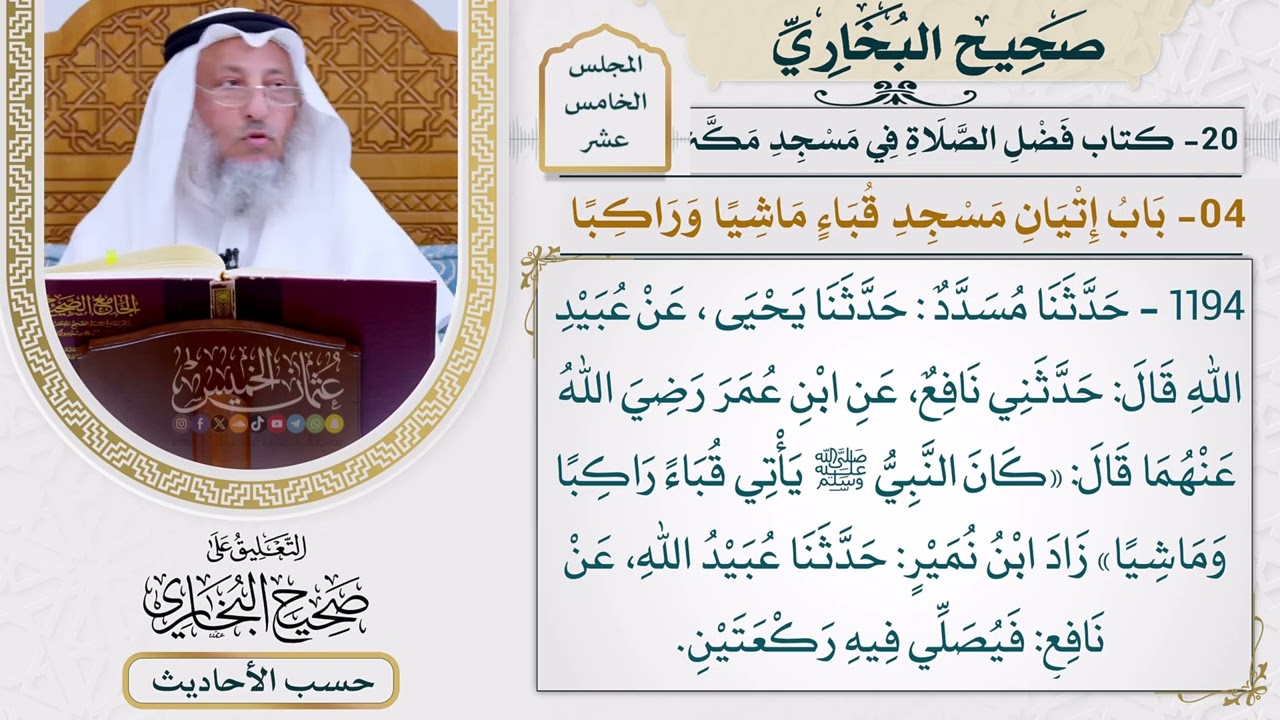 صَحِيح البُخَارِيِّ
المجلس
الخامس
عشر
20- كتاب فَضْلِ الصَّلَاةِ فِي مَسْجِدِ مَكَّةَ
04- بَابُ إِتْيَانِ مَسْجِدِ قُبَاءٍ مَاشِيًا وَرَاكِبًا
1194 - حَدَّثَنَا مُسَدَّدٌ : حَدَّثَنَا يَحْيَى ، عَنْ عُبَيْدِ
اللهِ قَالَ: حَدَّثَنِي نَافِعٌ، عَنِ ابْنِ عُمَرَ رَضِيَ اللهُ
عَنْهُمَا قَالَ: «كَانَ النَّبِيُّ ﷺ يَأْتِي قُبَاءً رَاكِبًا
وَمَاشِيًا» زَادَ ابْنُ نُمَيْرٍ: حَدَّثَنَا عُبَيْدُ اللهِ، عَنْ
نَافِعٍ: فَيُصَلِّي فِيهِ رَكْعَتَيْنِ.
الجامع الصحيح
عثمان الخميس
التَّعْلِيقُ عَلَى
صَحِيحِ البُخَارِي
حسب الأحاديث